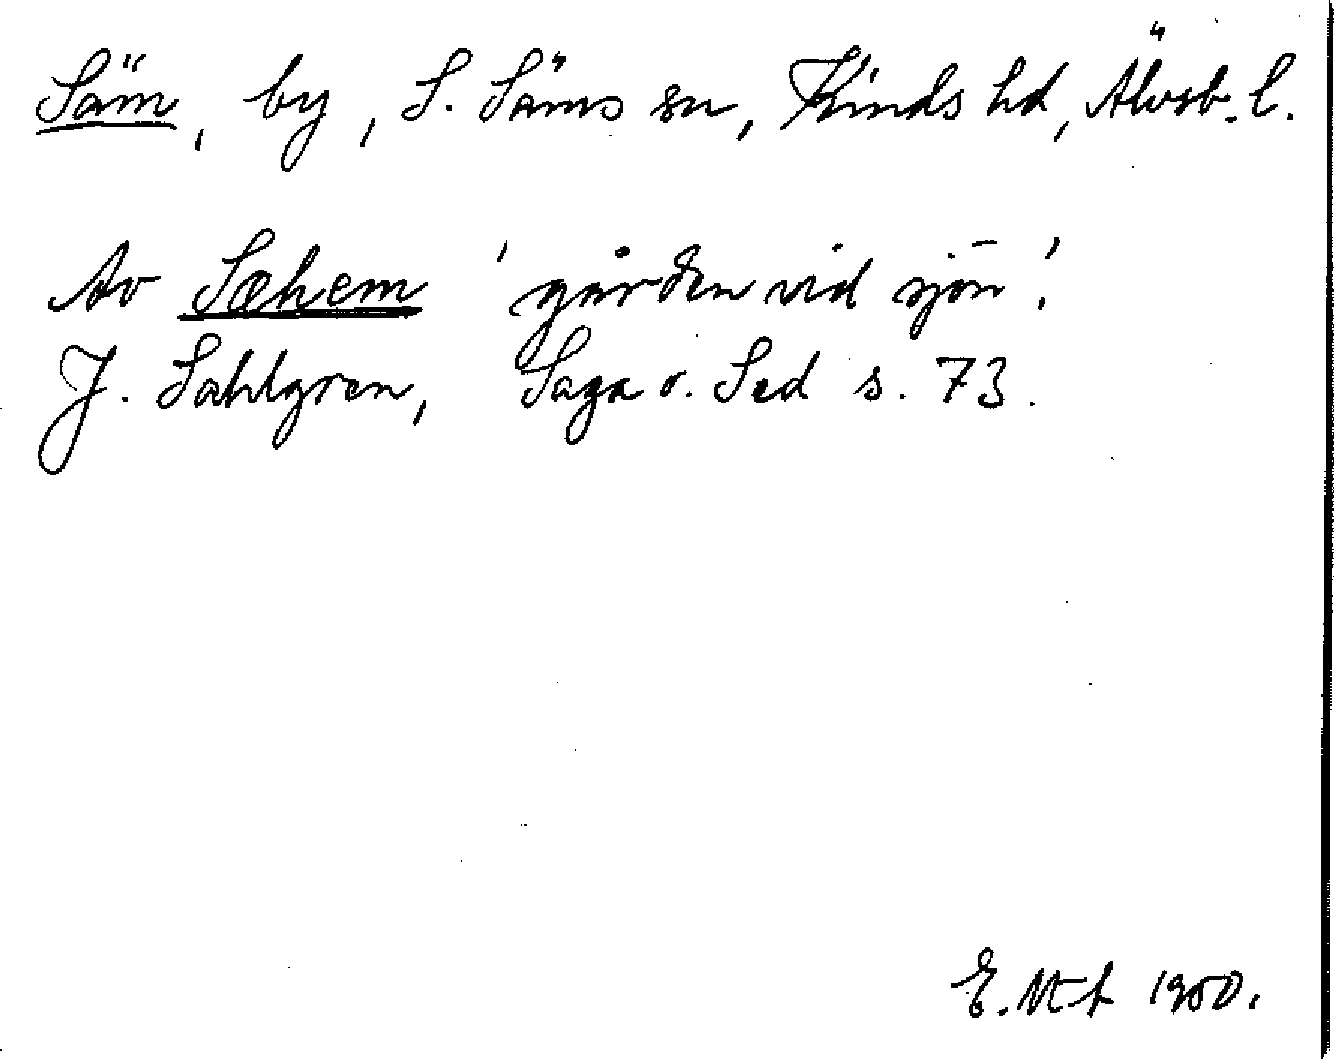 Säm, by, S. Säms sn, Kinds hd, Älvsb. l.
Av Sæhem 'gården vid sjön'.
J. Sahlgren, Saga o. Sed s. 73.
1950.